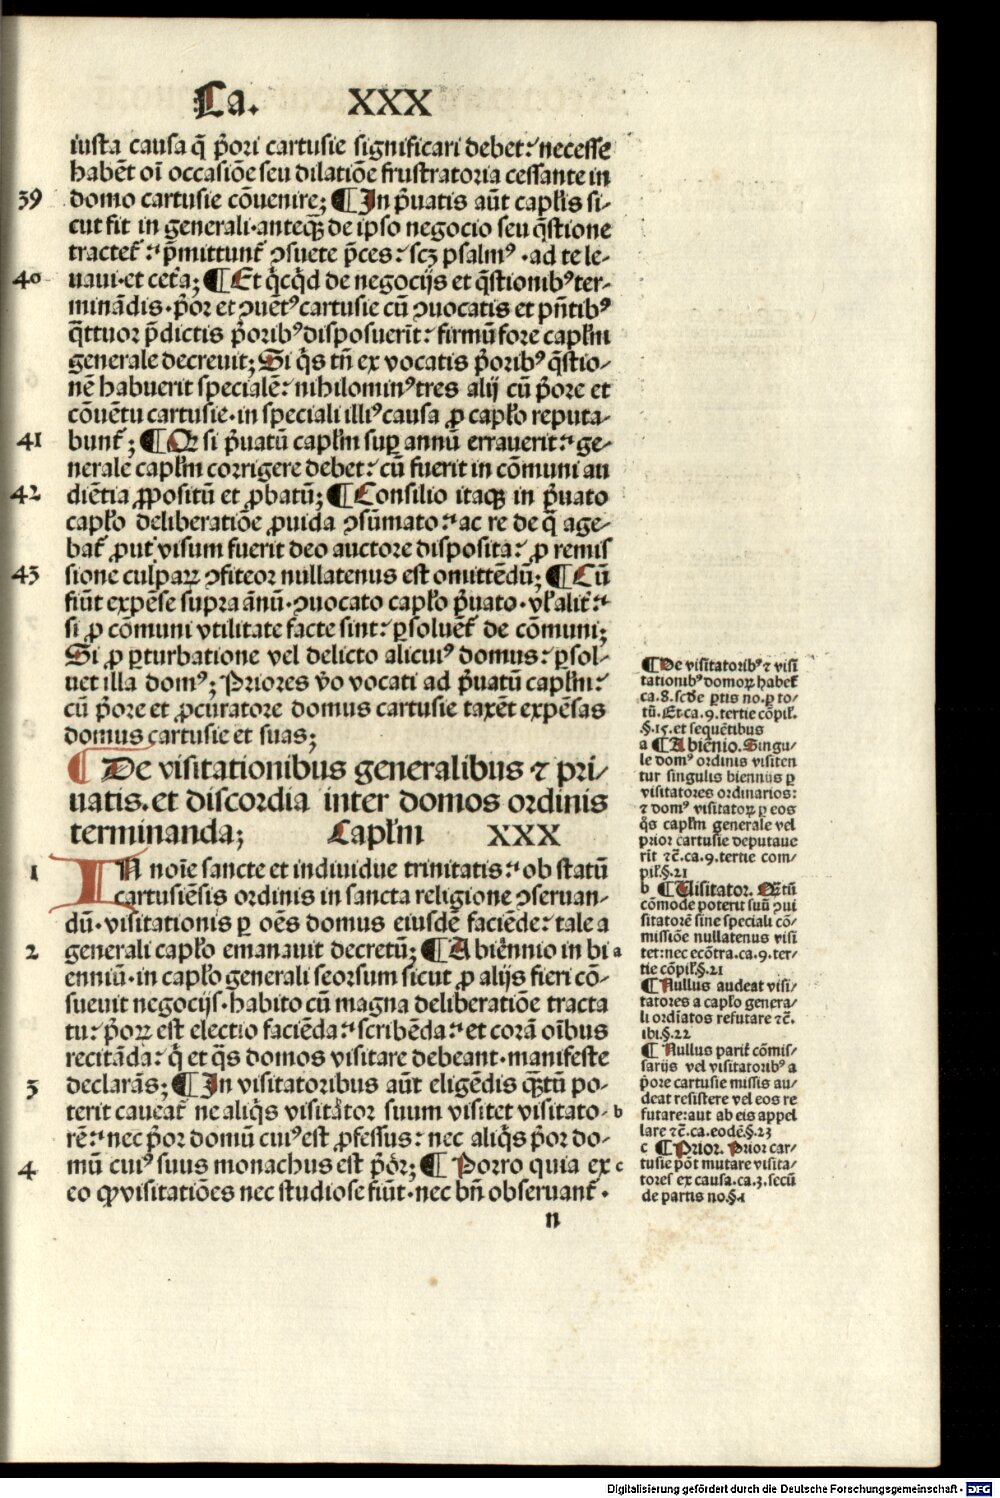 Ca. XXX
iusta causa q̄ p̄ori cartusie significari debet: necesse
habēt oī occasiōe seu dilatiōe frustratoria cessante in
39 domo cartusie cōuenire; ¶ In p̄uatis aūt caplīs si-
cut fit in generali·anteqꝫ de ipso negocio seu q̄stione
tractet᷑: p̄mittunt᷑ ꝯsuete p̄ces: scꝫ psalmꝰ·ad te le-
40 uaui·et cet̄a; ¶ Et q̄cq̄d de negocijs et q̄stionibꝰ ter-
minādis·p̄or et ꝯuētꝰ cartusie cū ꝯuocatis et pn̄tibꝰ
q̄ttuor p̄dictis p̄oribꝰ disposuerīt: firmū fore capl̄m
generale decreuit; Si q̄s tn̄ ex vocatis p̄oribꝰ q̄stio-
nē habuerit specialē: nihilominꝰ tres alij cū p̄ore et
cōuētu cartusie·in speciali illiꝰ causa ꝓ capl̄o reputa-
41 bunt᷑; ¶ Qꝫ si p̄uatū capl̄m suꝑ annū errauerit: ge-
nerale capl̄m corrigere debet: cū fuerit in cōmuni au
42 diētia ꝓpositū et ꝓbatū; ¶ Consilio itaqꝫ in p̄uato
capl̄o deliberatiōe ꝓuida ꝯsūmato: ac re de q̄ age-
bat᷑ ꝓut visum fuerit deo auctore disposita: ꝓ remis
43 sione culpaꝝ ꝯfiteor nullatenus est omittēdū; ¶ Cū
fiūt expēse supra ānū·ꝯuocato capl̄o p̄uato·vl̄ alit᷑:
si ꝓ cōmuni vtilitate facte sint: ꝑsoluēt᷑ de cōmuni;
Si ꝓ ꝑturbatione vel delicto alicuiꝰ domus: ꝑsol-
uet illa domꝰ; Priores v̄o vocati ad p̄uatū capl̄m:
cū p̄ore et ꝓcuratore domus cartusie taxēt expēsas
domus cartusie et suas;
¶ De visitationibus generalibus ⁊ pri-
uatis.et discordia inter domos ordinis
terminanda; Capl̄m XXX
1 IN noīe sancte et indiuidue trinitatis: ob statū
cartusiēsis ordinis in sancta religione ꝯseruan-
dū·visitationis ꝑ oēs domus eiusdē faciēde: tale a
2 generali capl̄o emanauit decretū; ¶ A biēnnio in bi a
enniū·in capl̄o generali seorsum sicut ꝓ alijs fieri cō-
sueuit negocijs·habito cū magna deliberatiōe tracta
tu: p̄oꝝ est electio faciēda: scribēda: et corā oībus
recitāda: q̄ et q̄s domos visitare debeant·manifeste
3 declarās; ¶ In visitatoribus aūt eligēdis qꝫtū po-
terit caueat᷑ ne aliq̄s visitator suum visitet visitato- b
rē: nec p̄or domū cuiꝰ est ꝓfessus: nec aliq̄s p̄or do-
4 mū cuiꝰ suus monachus est p̄or; ¶ Porro quia ex c
eo ꝙ visitatiōes nec studiose fiūt·nec bn̄ obseruant᷑·
n
¶ De visitatoribꝰ ⁊ visi
tationibꝰ domoꝝ habet᷑
ca.8.scd̄e ꝑtis no.ꝑ to-
tū. Et ca.9.tertie cōpil᷑.
§.15.et sequētibus
a ¶ A biēnio. Singu-
le domꝰ ordinis visiten
tur singulis bienniis ꝑ
visitatores ordinarios:
⁊ domꝰ visitatoꝝ ꝑ eos
q̄s capl̄m generale vel
prior cartusie deputaue
rit ⁊c̄.ca.9.tertie com-
pil᷑.§.21
b ¶ Visitator. Qꝫtū
cōmode poterit suū ꝯui
sitatorē sine speciali cō-
missiōe nullatenus visi
tet:nec ecōtra.ca.9.ter-
tie cōpil᷑.§.21
¶ Nullus audeat visi-
tatores a capl̄o genera-
li ordīatos refutare ⁊c̄.
ibi.§.22
¶ Nullus parit᷑ cōmis-
sarijs vel visitatoribꝰ a
p̄ore cartusie missis au-
deat resistere vel eos re
futare:aut ab eis appel
lare ⁊c̄.ca.eodē.§.23
c ¶ Prior. Prior car-
tusie pōt mutare visita-
tores ex causa.ca.3.secū
de partis no.§.1
Digitalisierung gefördert durch die Deutsche Forschungsgemeinschaft - DFG